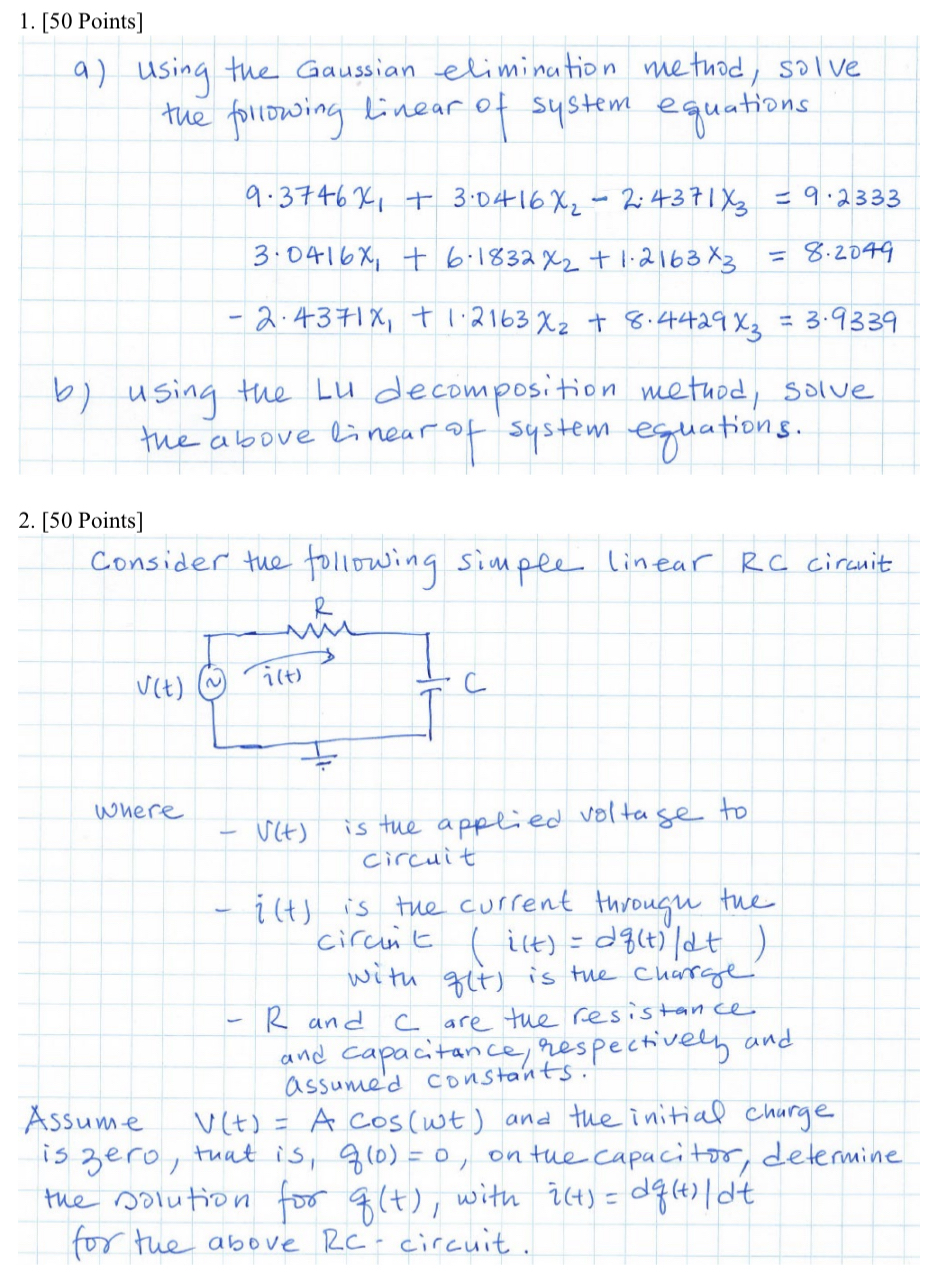 1. [50 Points]
a) using the Gaussian elimination method, solve
the following linear of system equations
9.3746x₁ + 3.0416x₂ - 2.4371x₃ = 9.2333
3.0416x₁ + 6.1832x₂ + 1.2163x₃ = 8.2049
- 2.4371x₁ + 1.2163x₂ + 8.4429x₃ = 3.9339
b) using the LU decomposition method, solve
the above linear of system equations.
2. [50 Points]
Consider the following simple linear RC circuit
R
V(t) ~ i(t) C
where
- V(t) is the applied voltage to
circuit
- i(t) is the current through the
circuit ( i(t) = dq(t)/dt )
with q(t) is the charge
- R and C are the resistance
and capacitance, respectively and
assumed constants.
Assume V(t) = A cos(wt) and the initial charge
is zero, that is, q(0) = 0, on the capacitor, determine
the solution for q(t), with i(t) = dq(t)/dt
for the above RC - circuit.